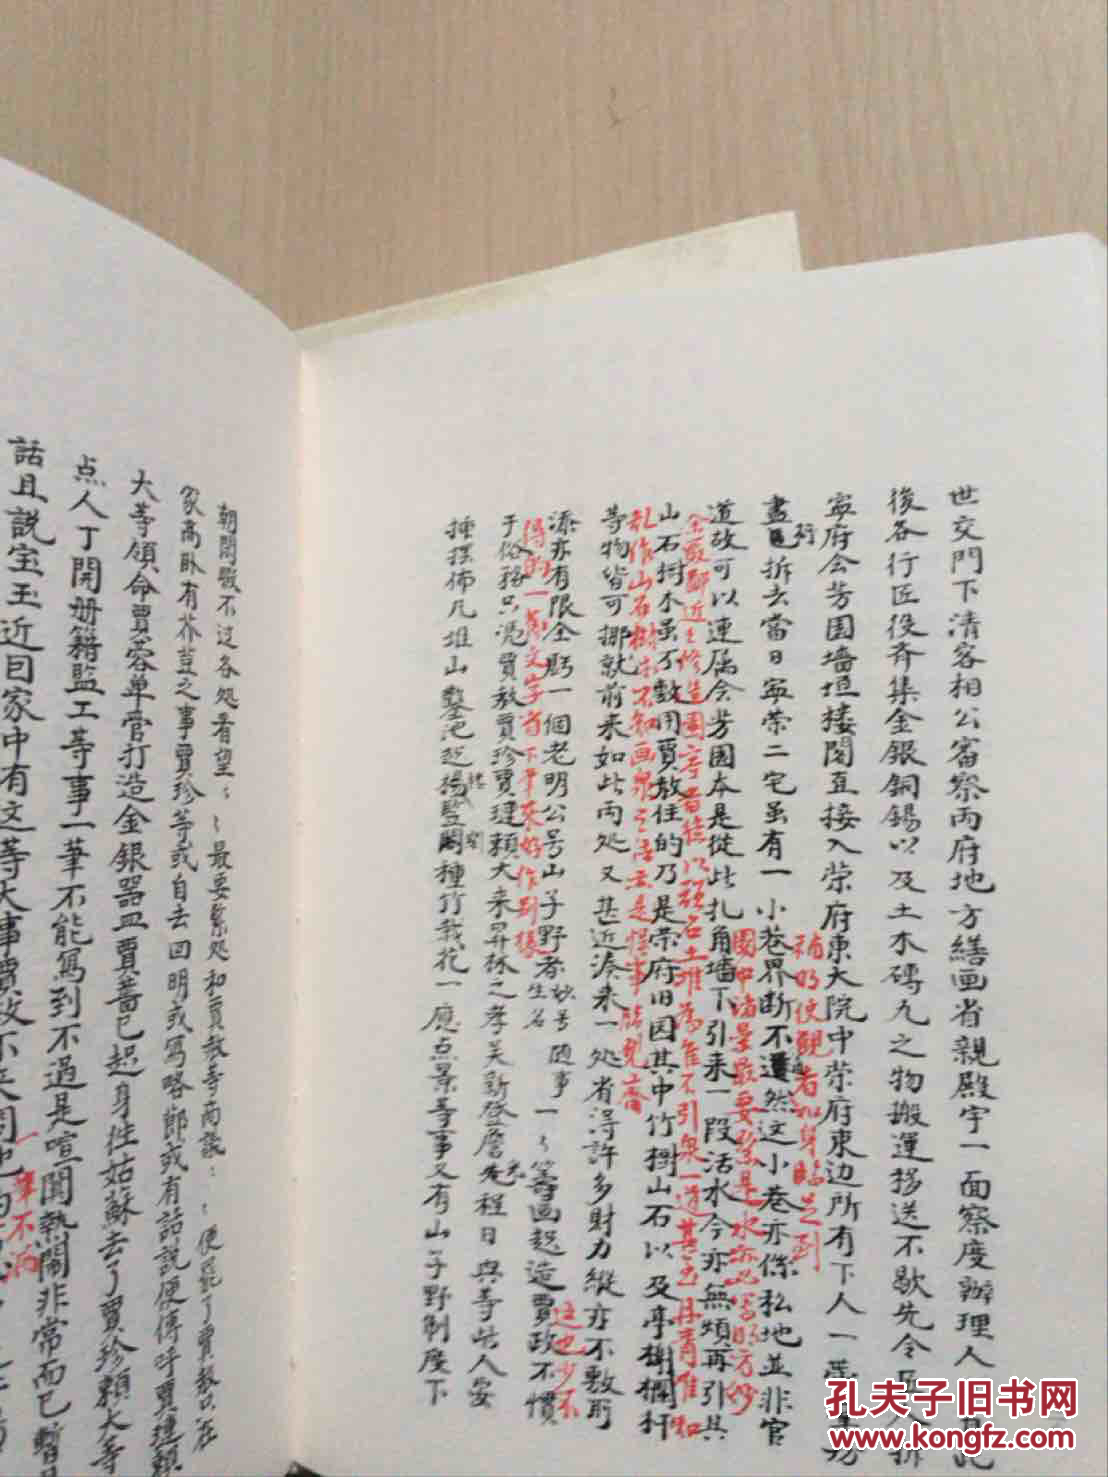 世交門下清客相公審察両府地方繕画省親殿宇一面察度辦理人丁
後各行匠役斉集金銀銅錫以及土木磚瓦之物搬運移送不歇先令匠人拆
寧府会芳园墻垣楼閣直接入栄府東大院中栄府東边所有下人一帯
補明使觀者如身臨足到
盡已拆去當日寧栄二宅虽有一小巷界断不通然这小巷亦係私地並非官
園中諸景最要緊是水亦必寫明方妙
道故可以連属会芳園本是從此扎角墻下引来一段活水今亦無煩再引其
余最鄙近之修造園亭者徒以頑石土堆為佳不引泉一道甚至丹青唯知
山石樹木虽不敷用賈赦住的乃是栄府旧园其中竹樹山石以及亭榭欄杆
乱作山石樹木不知画泉之法亦是恨事 脂硯斎
等物皆可挪就前来如此両処又甚近湊来一処省得許多財力縱亦不敷所
添亦有限全虧一個老明公号山子野者 妙号随事生名 一〻筹画起造賈政不慣
這也少不得的一節文字省下筆来好作别様
于俗務只凴賈赦賈珍賈璉賴大来昇林之孝吴新登詹光程日興等幾人安
挿擺佈凡堆山鑿池起楼竪閣種竹栽花一應点景等事又有山子野制度下
朝閒暇不过各処看望〻〻最要緊処和賈赦等商議〻〻便罷了賈赦只在
家高卧有芥荳之事賈珍等或自去回明或写略節或有話說便傳呼賈璉賴
大等領命賈蓉单管打造金銀器皿賈薔已起身往姑蘇去了賈珍賴大等
点人丁開册籍監工等事一筆不能寫到不過是喧闐熱閙非常而已暫且
一筆不漏
話且説宝玉近日家中有这等大事賈政不来問他的
孔夫子旧书网
www.kongfz.com